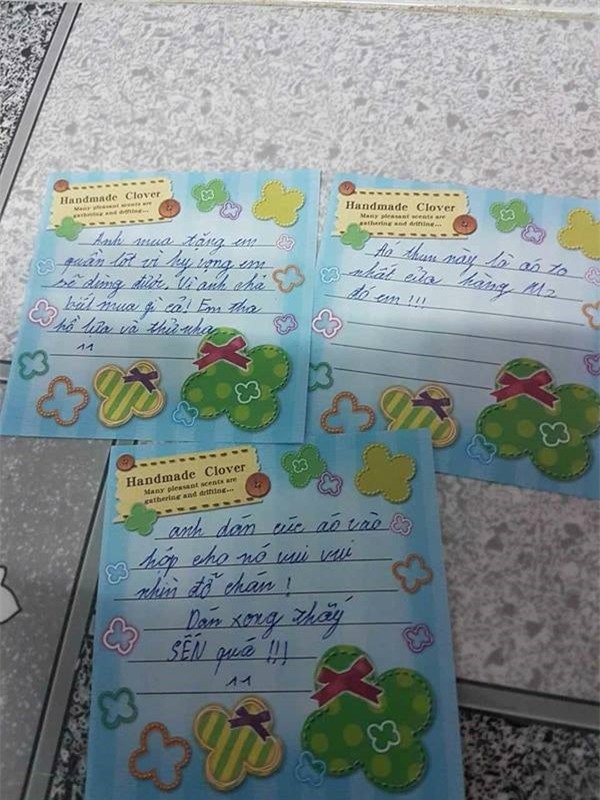 Handmade Clover
Many pleasant scents are
gathering and drifting...
Anh mua tặng em
quần lót và hy vọng em
sẽ dùng được. Vì anh chả
biết mua gì cả! Em tha
hồ lựa và thử nha
^^
Handmade Clover
Many pleasant scents are
gathering and drifting...
Áo thun này là áo to
nhất cửa hàng M2
đó em !!!
Handmade Clover
Many pleasant scents are
gathering and drifting...
anh dán cúc áo vào
hộp cho nó vui vui
nhìn đỡ chán !
Dán xong thấy
SẾN quá !!!
^^